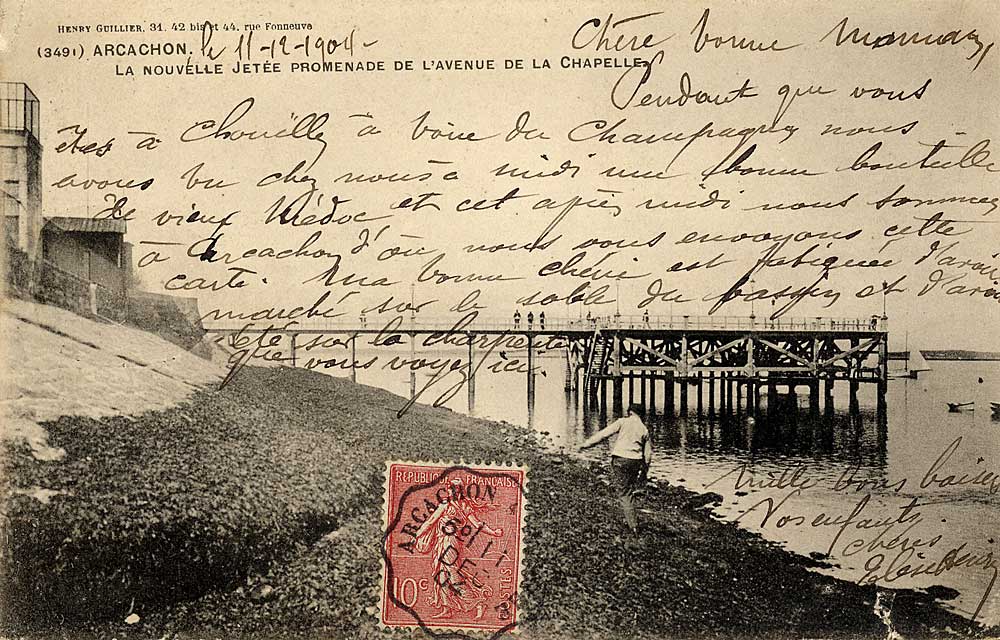 HENRY GUILLIER, 31. 42 bis et 44, rue Fonneuve
(3491) ARCACHON. le 11-12-1904-
LA NOUVELLE JETÉE PROMENADE DE L'AVENUE DE LA CHAPELLE
Chère bonne Maman,
Pendant que vous
êtes à Chouilly à boire du Champagne nous
avons bu chez nous à midi une bonne bouteille
de vieux Médoc et cet après midi nous sommes
à Arcachon d'où nous vous envoyons cette
carte. Ma bonne chérie est fatiguée d'avoir
marché sur le sable du bassin et d'avoir
été sur la charpente
que vous voyez ici.
Mille bons baisers
Vos enfants
chéris
REPUBLIQUE FRANÇAISE
ARCACHON
11
DEC
04
10c POSTES